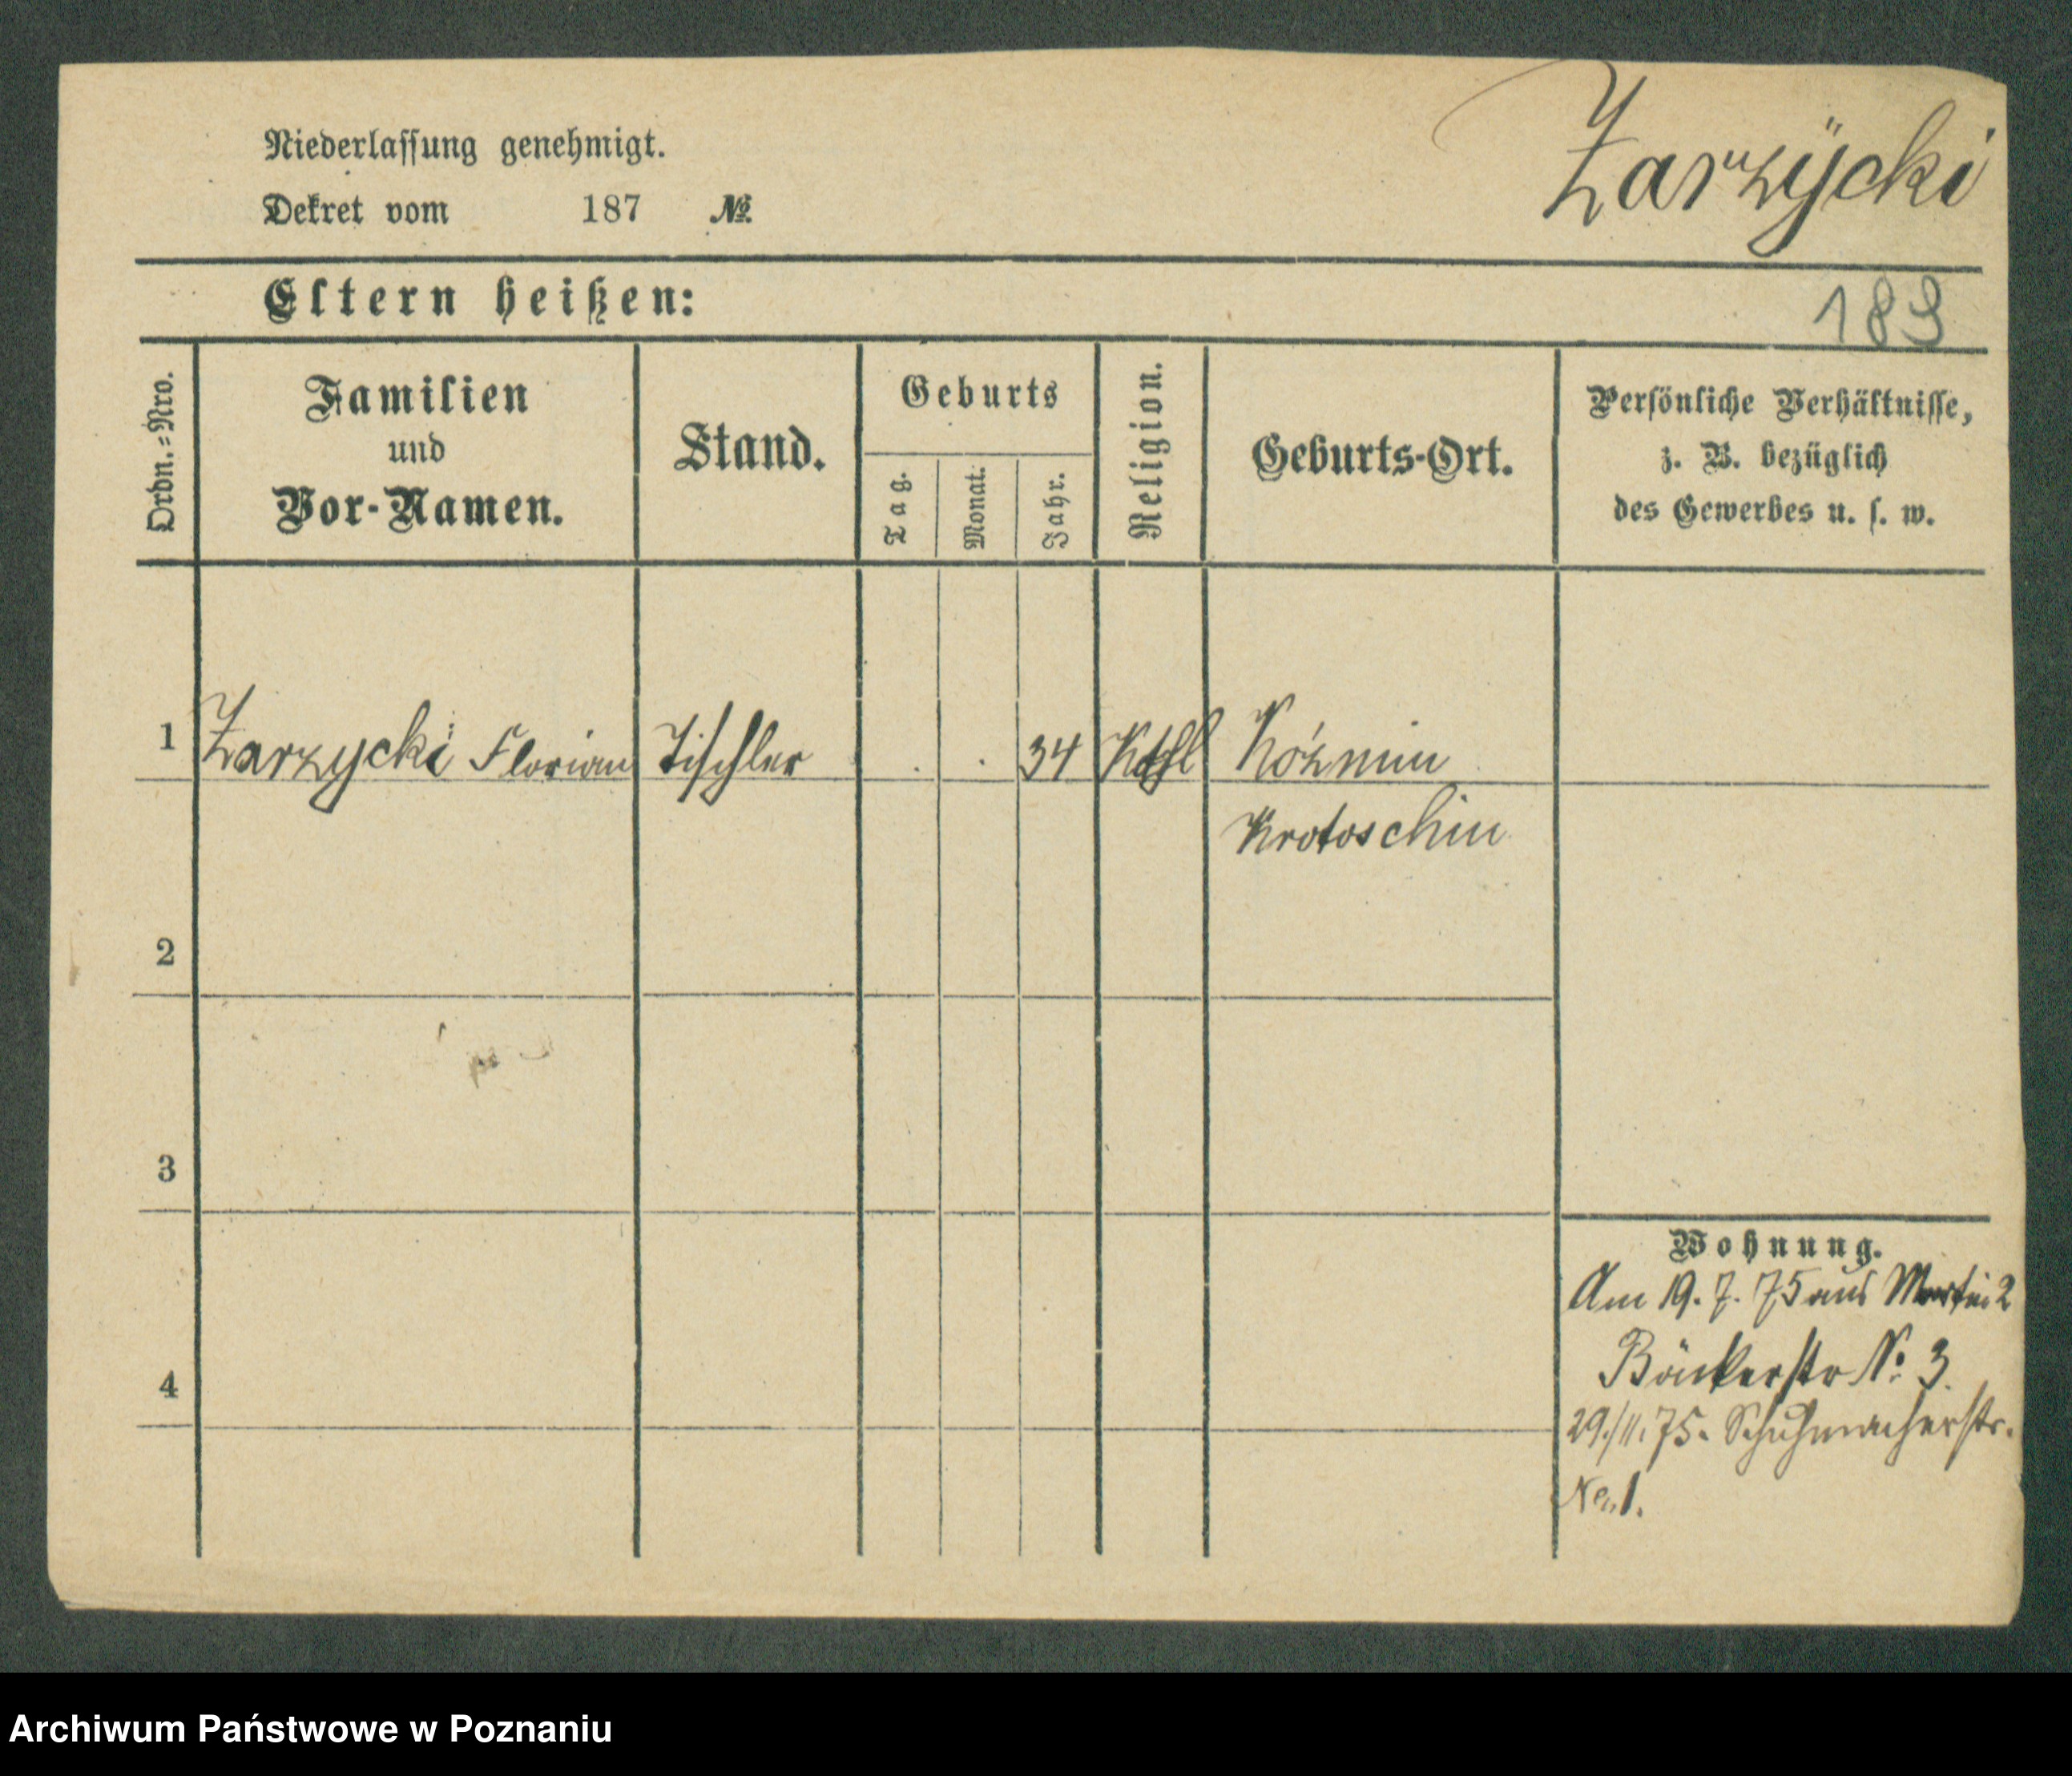 Zarzÿcki
Niederlassung genehmigt.
Dekret vom 187 №
Eltern heißen:
189
Ordn.=Nro.
Familien
und
Vor-Namen.
Stand.
Geburts
Tag.
Monat.
Jahr.
Religion.
Geburts-Ort.
Persönliche Verhältnisse,
z. B. bezüglich
des Gewerbes u. s. w.
1 Zarzycki Florian Tischler . . 34 Kathl Kóźmin
Krotoschin
2
3
4
Wohnung.
Am 19. 7. 75 aus Martin 2
Bäckerstr № 3.
29./11. 75. Schuhmacherstr.
No. 1.
Archiwum Państwowe w Poznaniu